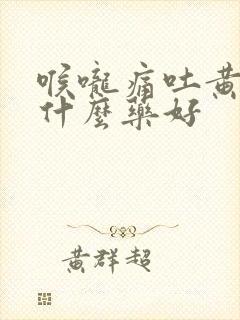 喉嚨痛吐黃
什麼藥好
黃群超